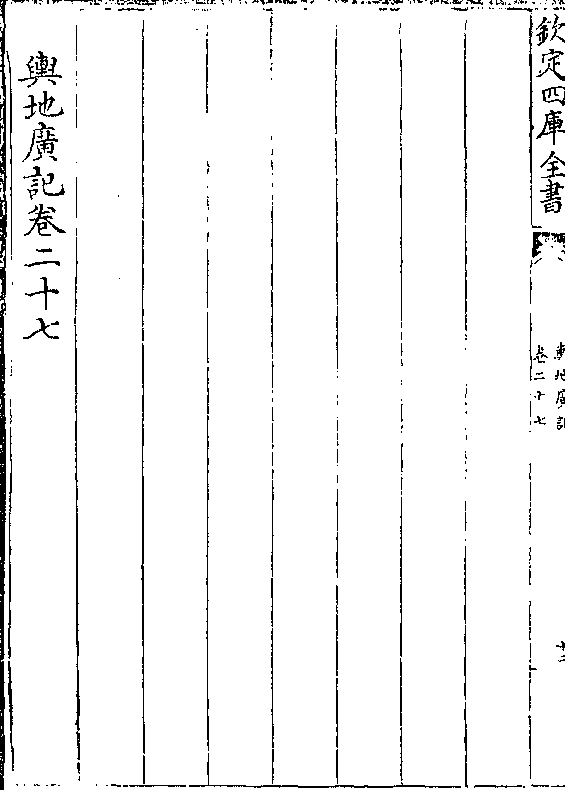 欽定四庫全書
輿地廣記
卷二十七
十二
輿地廣記卷二十七